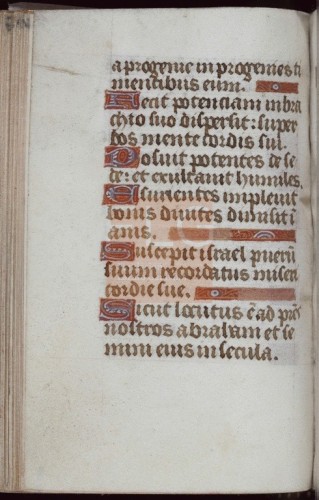 a progenie in progenies ti
mentibus eum.
Fecit potenciam in bra
chio suo dispersit: super
bos mente cordis sui.
Deposuit potentes de se
de: et exaltavit humiles.
Esurientes implevit
bonis divites dimisit i
anis.
Suscepit israel puerū
suum recordatus miseri
cordie sue.
Sicut locutus ē ad pr̄es
nostros abraham et se
mini eius in secula.